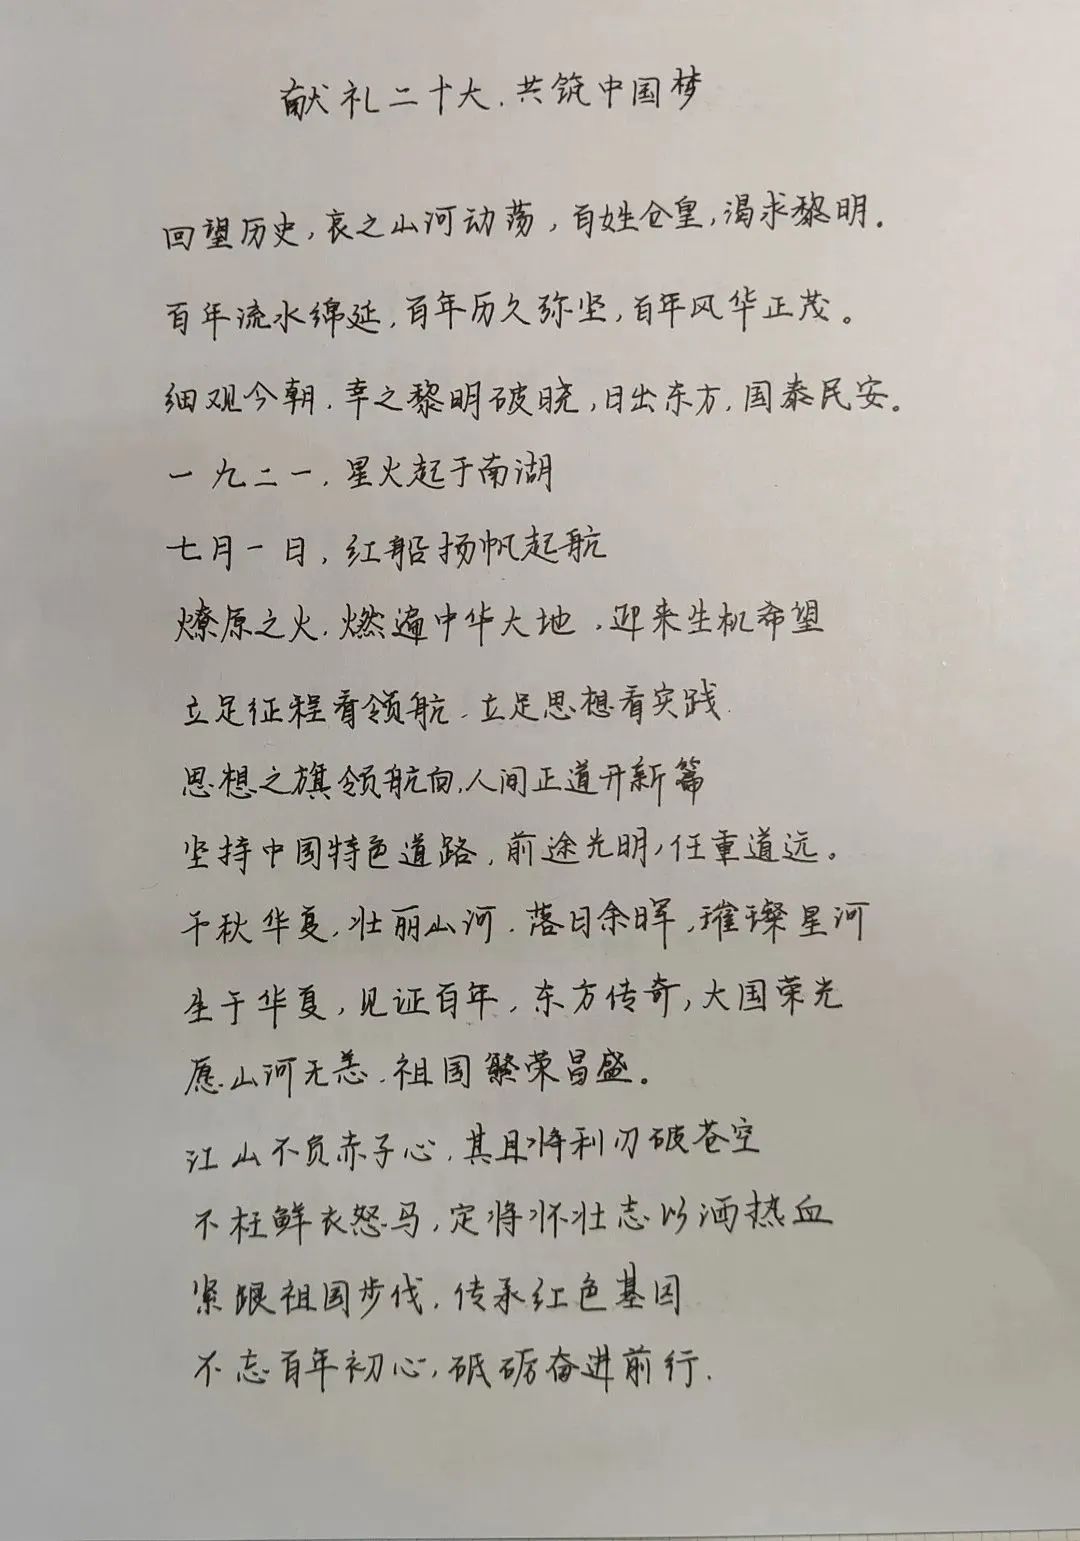 献礼二十大，共筑中国梦
回望历史，哀之山河动荡，百姓仓皇，渴求黎明。
百年流水绵延，百年历久弥坚，百年风华正茂。
细观今朝，幸之黎明破晓，日出东方，国泰民安。
一九二一，星火起于南湖
七月一日，红船扬帆起航
燎原之火，燃遍中华大地，迎来生机希望
立足征程看领航，立足思想看实践
思想之旗领航向，人间正道开新篇
坚持中国特色道路，前途光明，任重道远。
千秋华夏，壮丽山河，落日余晖，璀璨星河
生于华夏，见证百年，东方传奇，大国荣光
愿山河无恙，祖国繁荣昌盛。
江山不负赤子心，其且将利刃破苍空
不枉鲜衣怒马，定将怀壮志以洒热血
紧跟祖国步伐，传承红色基因
不忘百年初心，砥砺奋进前行.